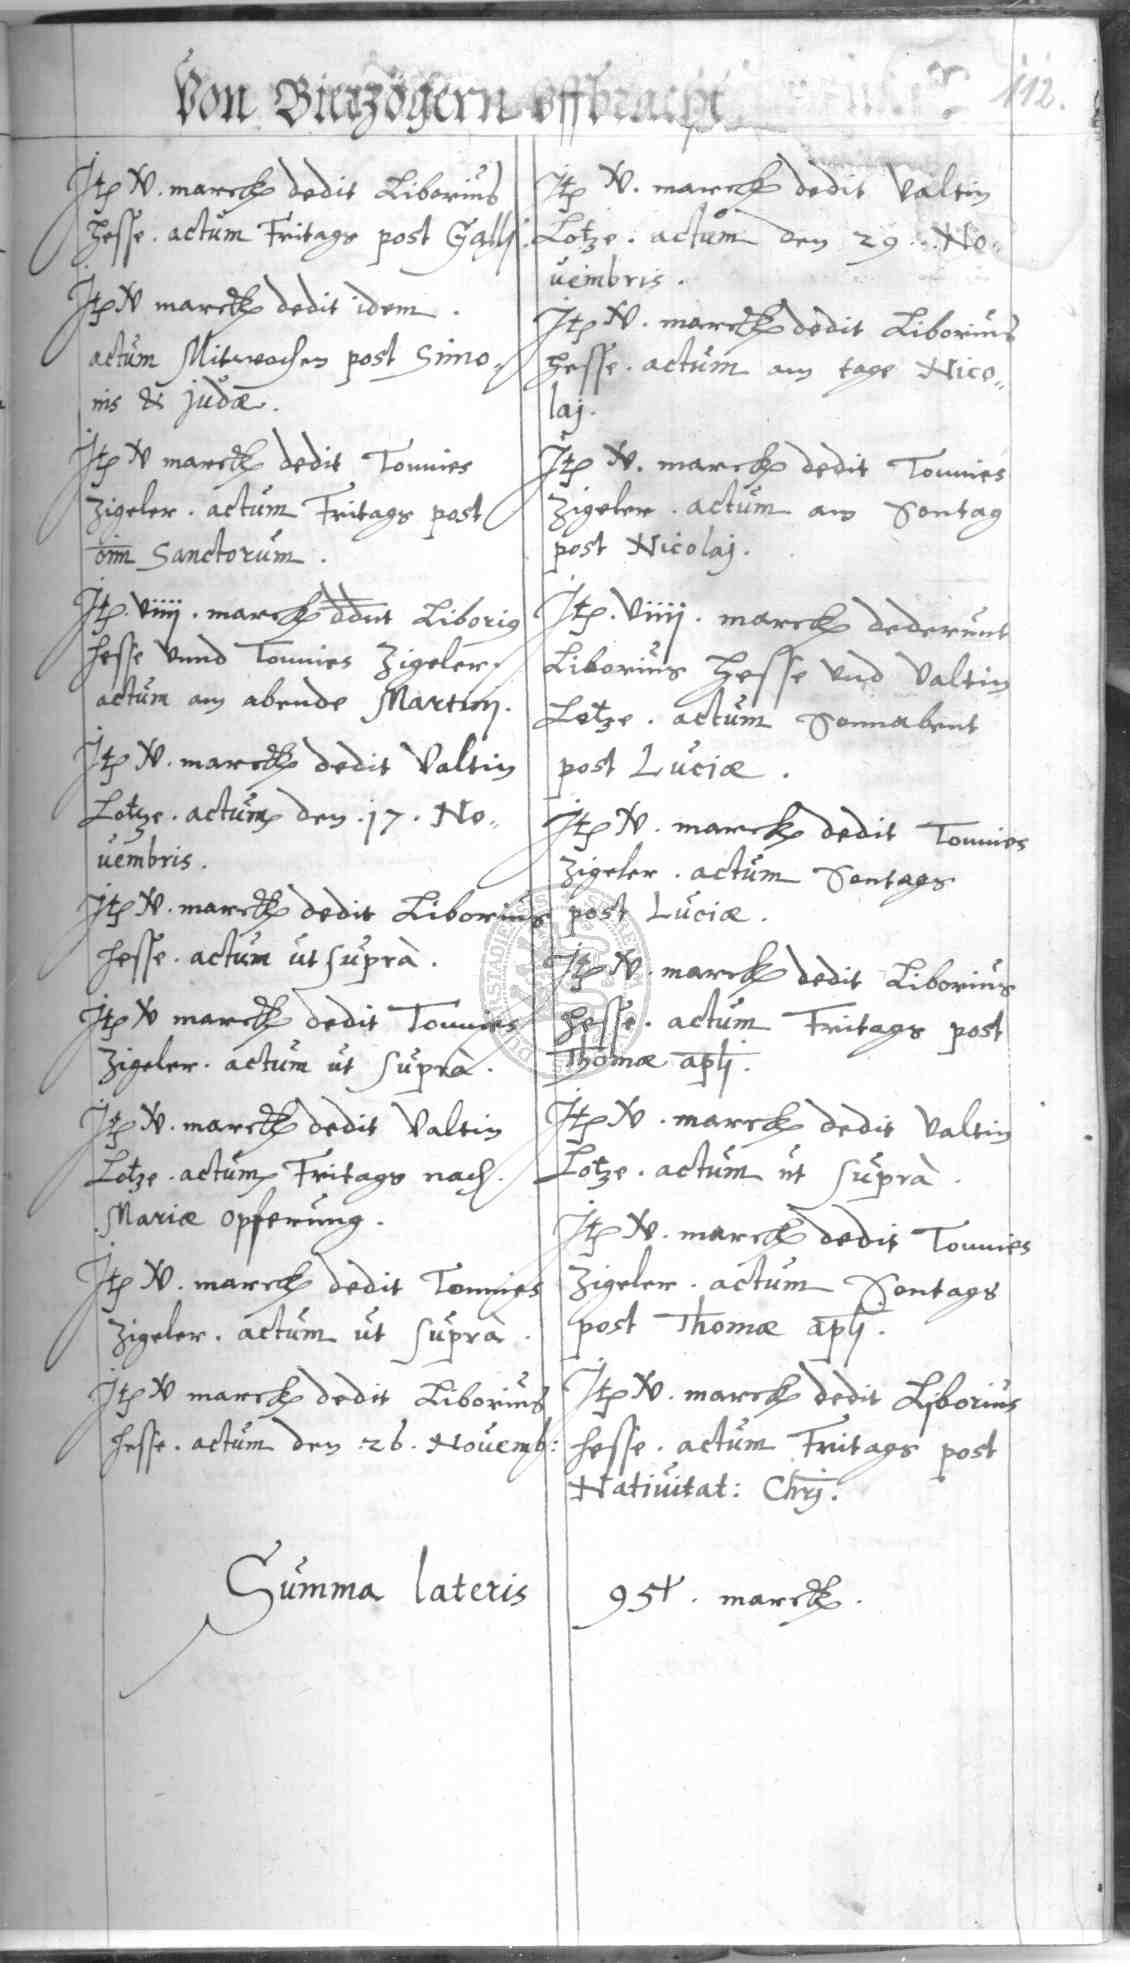 Von Bierzögern uffbracht
112.
Itē V. marck dedit Liborius
Hesse. actum Fritags post Galli.
Itē V marck dedit idem.
actum Mitwochen post Simo-
nis & Judæ.
Itē V marck dedit Tonnies
Zigeler. actum Fritags post
oīm Sanctorum.
Itē. viiij. marck ddnt Liborius
Hesse unnd Tonnies Zigeler.
actum am abende Martinj.
Itē V. marck dedit Valtin
Lotze. actum den .17. No-
uembris.
Itē V. marck dedit Liborius
Hesse. actum ut suprà.
Itē V marck dedit Tonnies
Zigeler. actum ut suprà.
Itē V. marck dedit Valtin
Lotze. actum Fritags nach
Mariæ opferung.
Itē V. marck dedit Tonnies
Zigeler. actum ut suprà.
Itē V marck dedit Liborius
Hesse. actum den .26. Nouemb:
Itē V. marck dedit Valtin
Lotze. actum den 29. No-
uembris.
Itē V. marck dedit Liborius
Hesse. actum am tage Nico-
laj.
Itē V. marck dedit Tonnies
Zigeler. actum am Sontag
post Nicolaj.
Itē. viiij. marck dederunt
Liborius Hesse und Valtin
Lotze. actum Sonnabent
post Luciæ.
Itē V. marck dedit Tonnies
Zigeler. actum Sontags
post Luciæ.
Itē V. marck dedit Liborius
Hesse. actum Fritags post
Thomæ aplj.
Itē V. marck dedit Valtin
Lotze. actum ut suprà.
Itē V. marck dedit Tonnies
Zigeler. actum Sontags
post Thomæ aplj.
Itē V. marck dedit Liborius
Hesse. actum Fritags post
Natiuitat: Chrj.
Summa lateris 95½. marck.